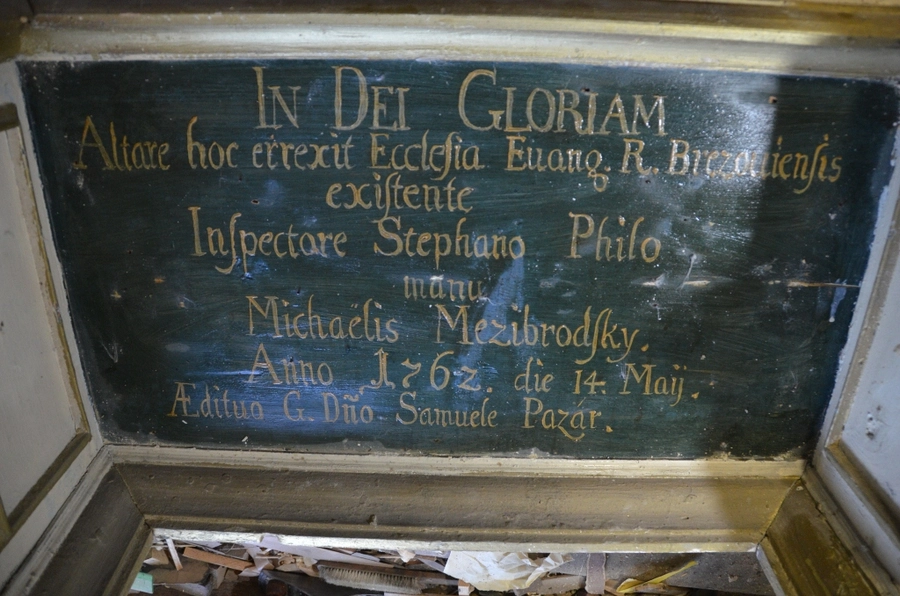 IN DEI GLORIAM
Altare hoc errexit Eccleſia Euang. R. Brezouienſis
exiſtente
Inſpectore Stephano Philſo
manu
Michaëlis Mezibrodſky.
Anno 1762. die 14. Maij.
Ædituo G. Dño. Samuele Pazár.